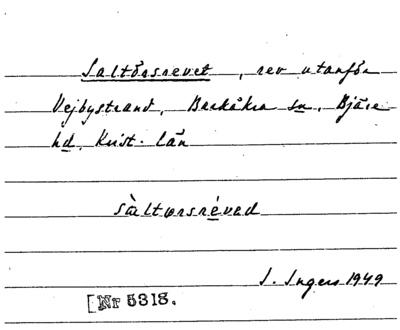 Saltörsrevet, rev utanför
Vejbystrand, Barkåkra sn, Bjäre
hd, Krist. län
sàltørsréved
I. Ingers 1949
[Nr 5318.